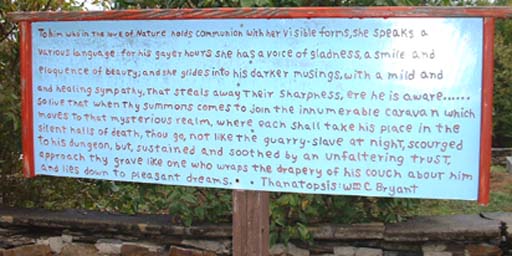 To him who in the love of Nature holds communion with her visible forms, she speaks a
various language for his gayer hours she has a voice of gladness, a smile and
eloquence of beauty; and she glides into his darker musings, with a mild and
and healing sympathy, that steals away their sharpness, ere he is aware......
so live that when thy summons comes to join the innumerable caravan which
moves to that mysterious realm, where each shall take his place in the
silent halls of death, thou go, not like the quarry-slave at night, scourged
to his dungeon, but, sustained and soothed by an unfaltering trust,
approach thy grave like one who wraps the drapery of his couch about him
and lies down to pleasant dreams. • • Thanatopsis: Wm C Bryant